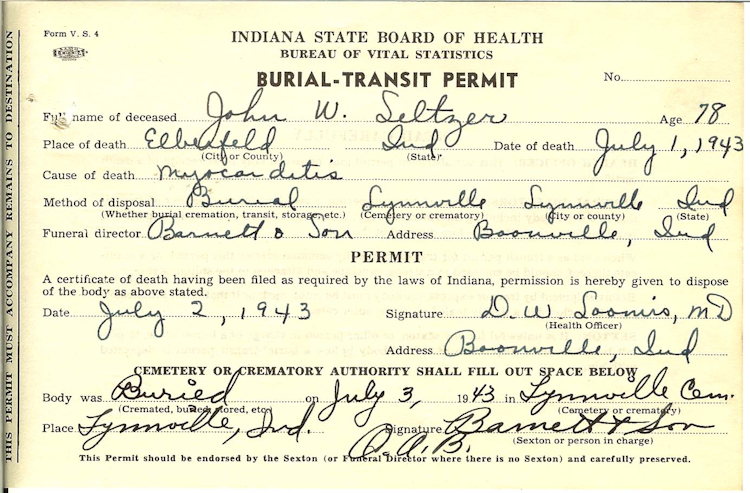 Form V. S. 4
INDIANA STATE BOARD OF HEALTH
BUREAU OF VITAL STATISTICS
BURIAL-TRANSIT PERMIT
No.
Full name of deceased John W. Seltzer Age 78
Place of death Elberfeld Ind Date of death July 1, 1943
(City or County) (State)
Cause of death Myocarditis
Method of disposal Burial Lynnville Lynnville Ind
(Whether burial cremation, transit, storage, etc.) (Cemetery or crematory) (City or county) (State)
Funeral director Barnett & Son Address Boonville, Ind
PERMIT
A certificate of death having been filed as required by the laws of Indiana, permission is hereby given to dispose
of the body as above stated.
Date July 2, 1943 Signature D. W. Loomis, MD
(Health Officer)
Address Boonville, Ind
CEMETERY OR CREMATORY AUTHORITY SHALL FILL OUT SPACE BELOW
Body was Buried on July 3, 1943 in Lynnville Cem.
(Cremated, buried, stored, etc.) (Cemetery or crematory)
Place Lynnville, Ind. Signature Barnett & Son
(Sexton or person in charge)
O. A. B.
This Permit should be endorsed by the Sexton (or Funeral Director where there is no Sexton) and carefully preserved.
THIS PERMIT MUST ACCOMPANY REMAINS TO DESTINATION